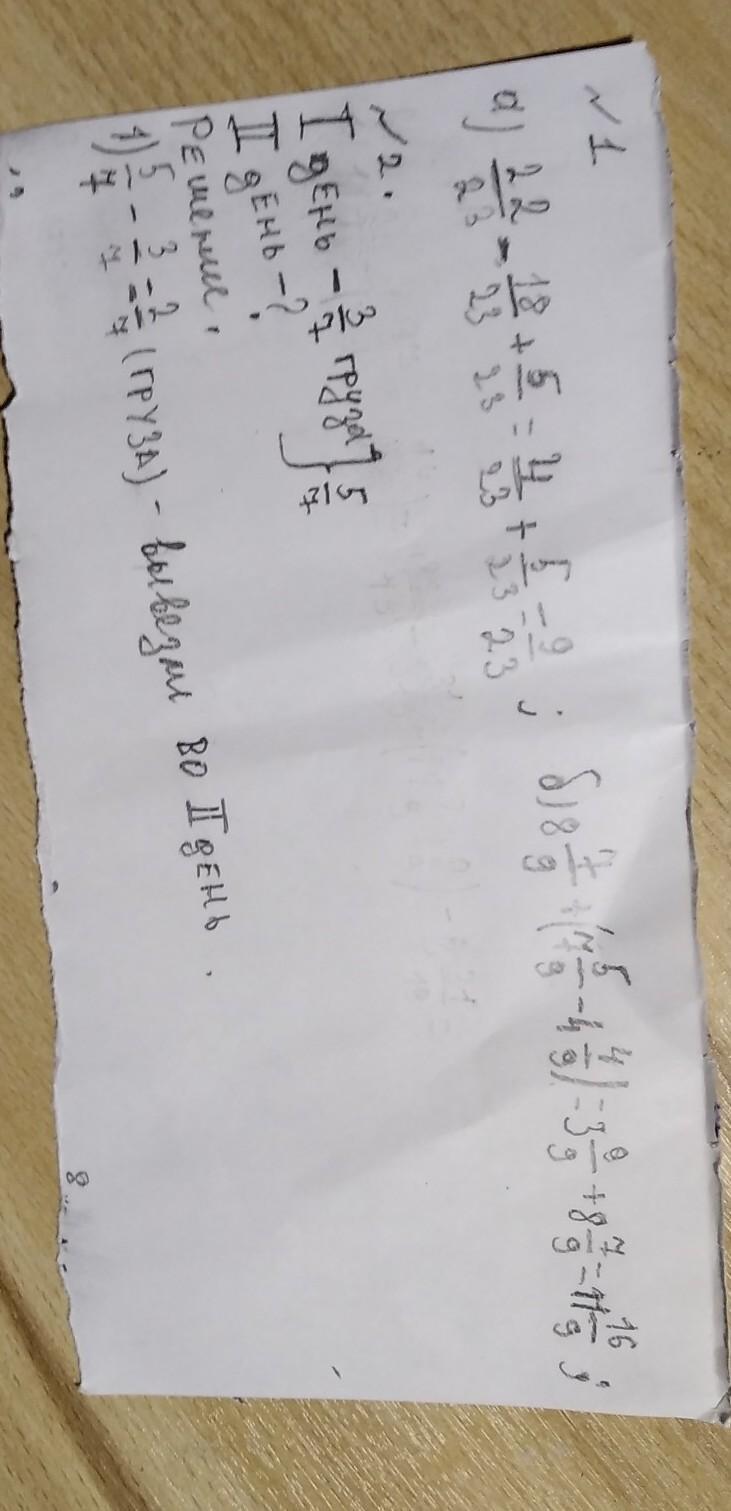 №1
а) 22/23 - 18/23 + 5/23 = 4/23 + 5/23 = 9/23 ; б) 8 7/9 + (7 5/9 - 4 4/9) = 3 9/9 + 8 7/9 = 11 16/9 ;
№2.
I день – 3/7 груза } 5/7
II день – ?
Решение.
1) 5/7 - 3/7 = 2/7 (груза) - вывезли во II день.